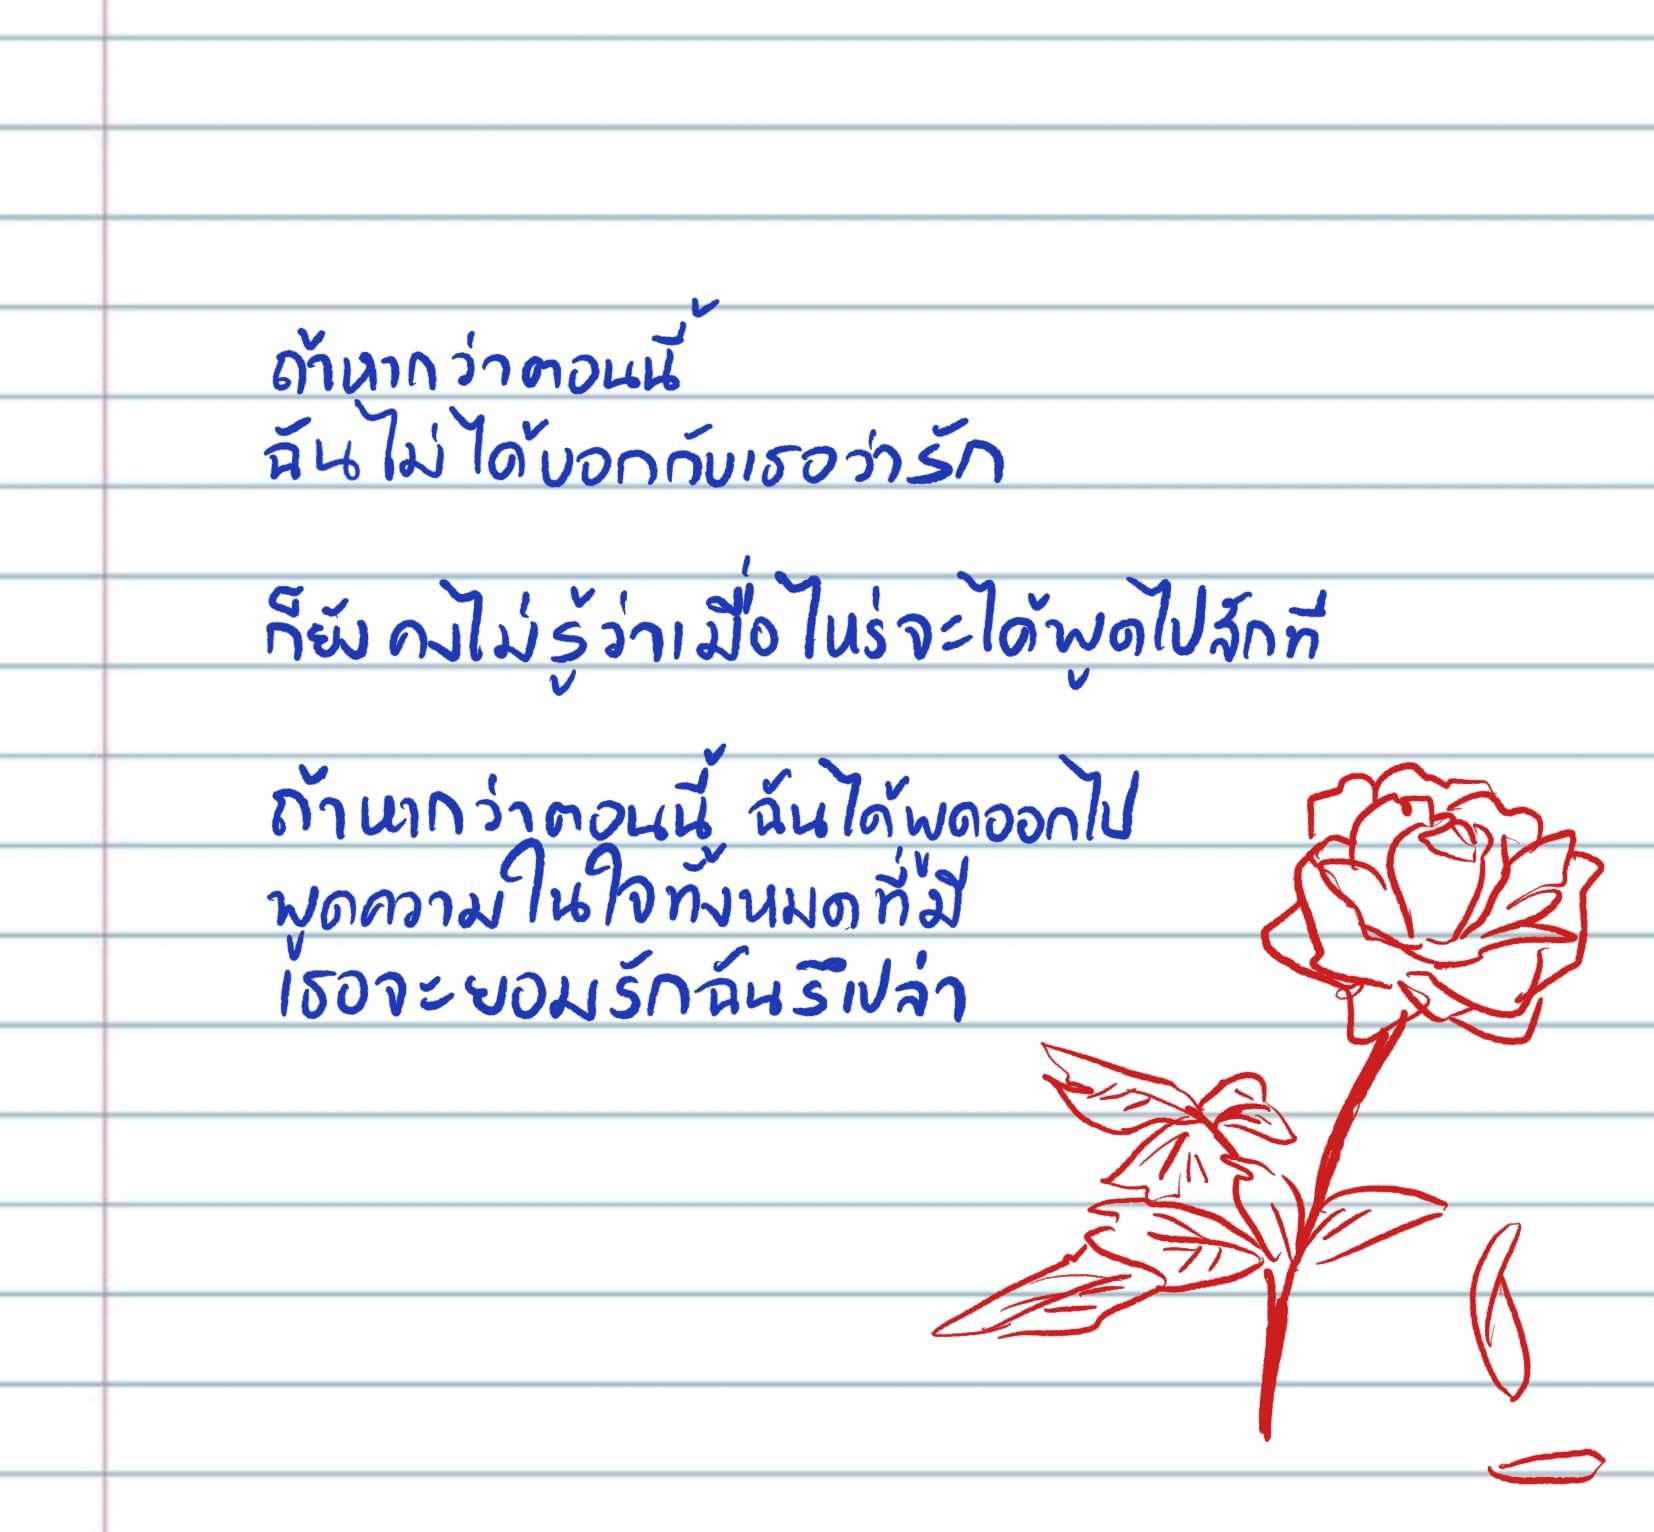 ถ้าหากว่าตอนนี้
ฉันไม่ได้บอกกับเธอว่ารัก
ก็ยังคงไม่รู้ว่าเมื่อไหร่จะได้พูดไปสักที
ถ้าหากว่าตอนนี้ ฉันได้พูดออกไป
พูดความในใจทั้งหมดที่มี
เธอจะยอมรักฉันรึเปล่า